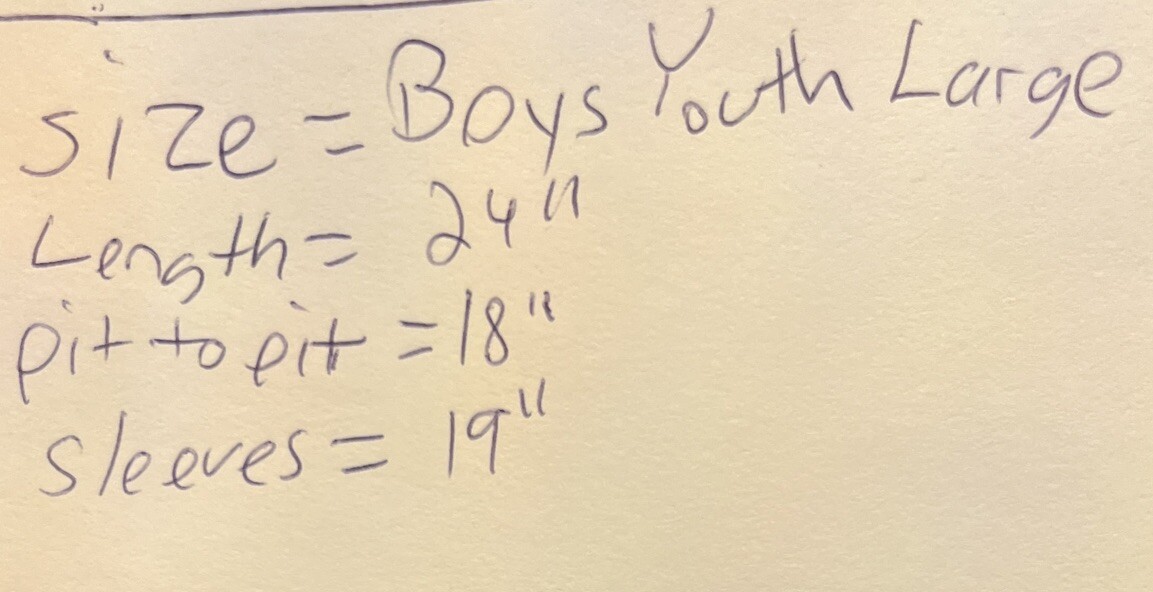 Size = Boys Youth Large
Length = 24"
pit to pit = 18"
Sleeves = 19"